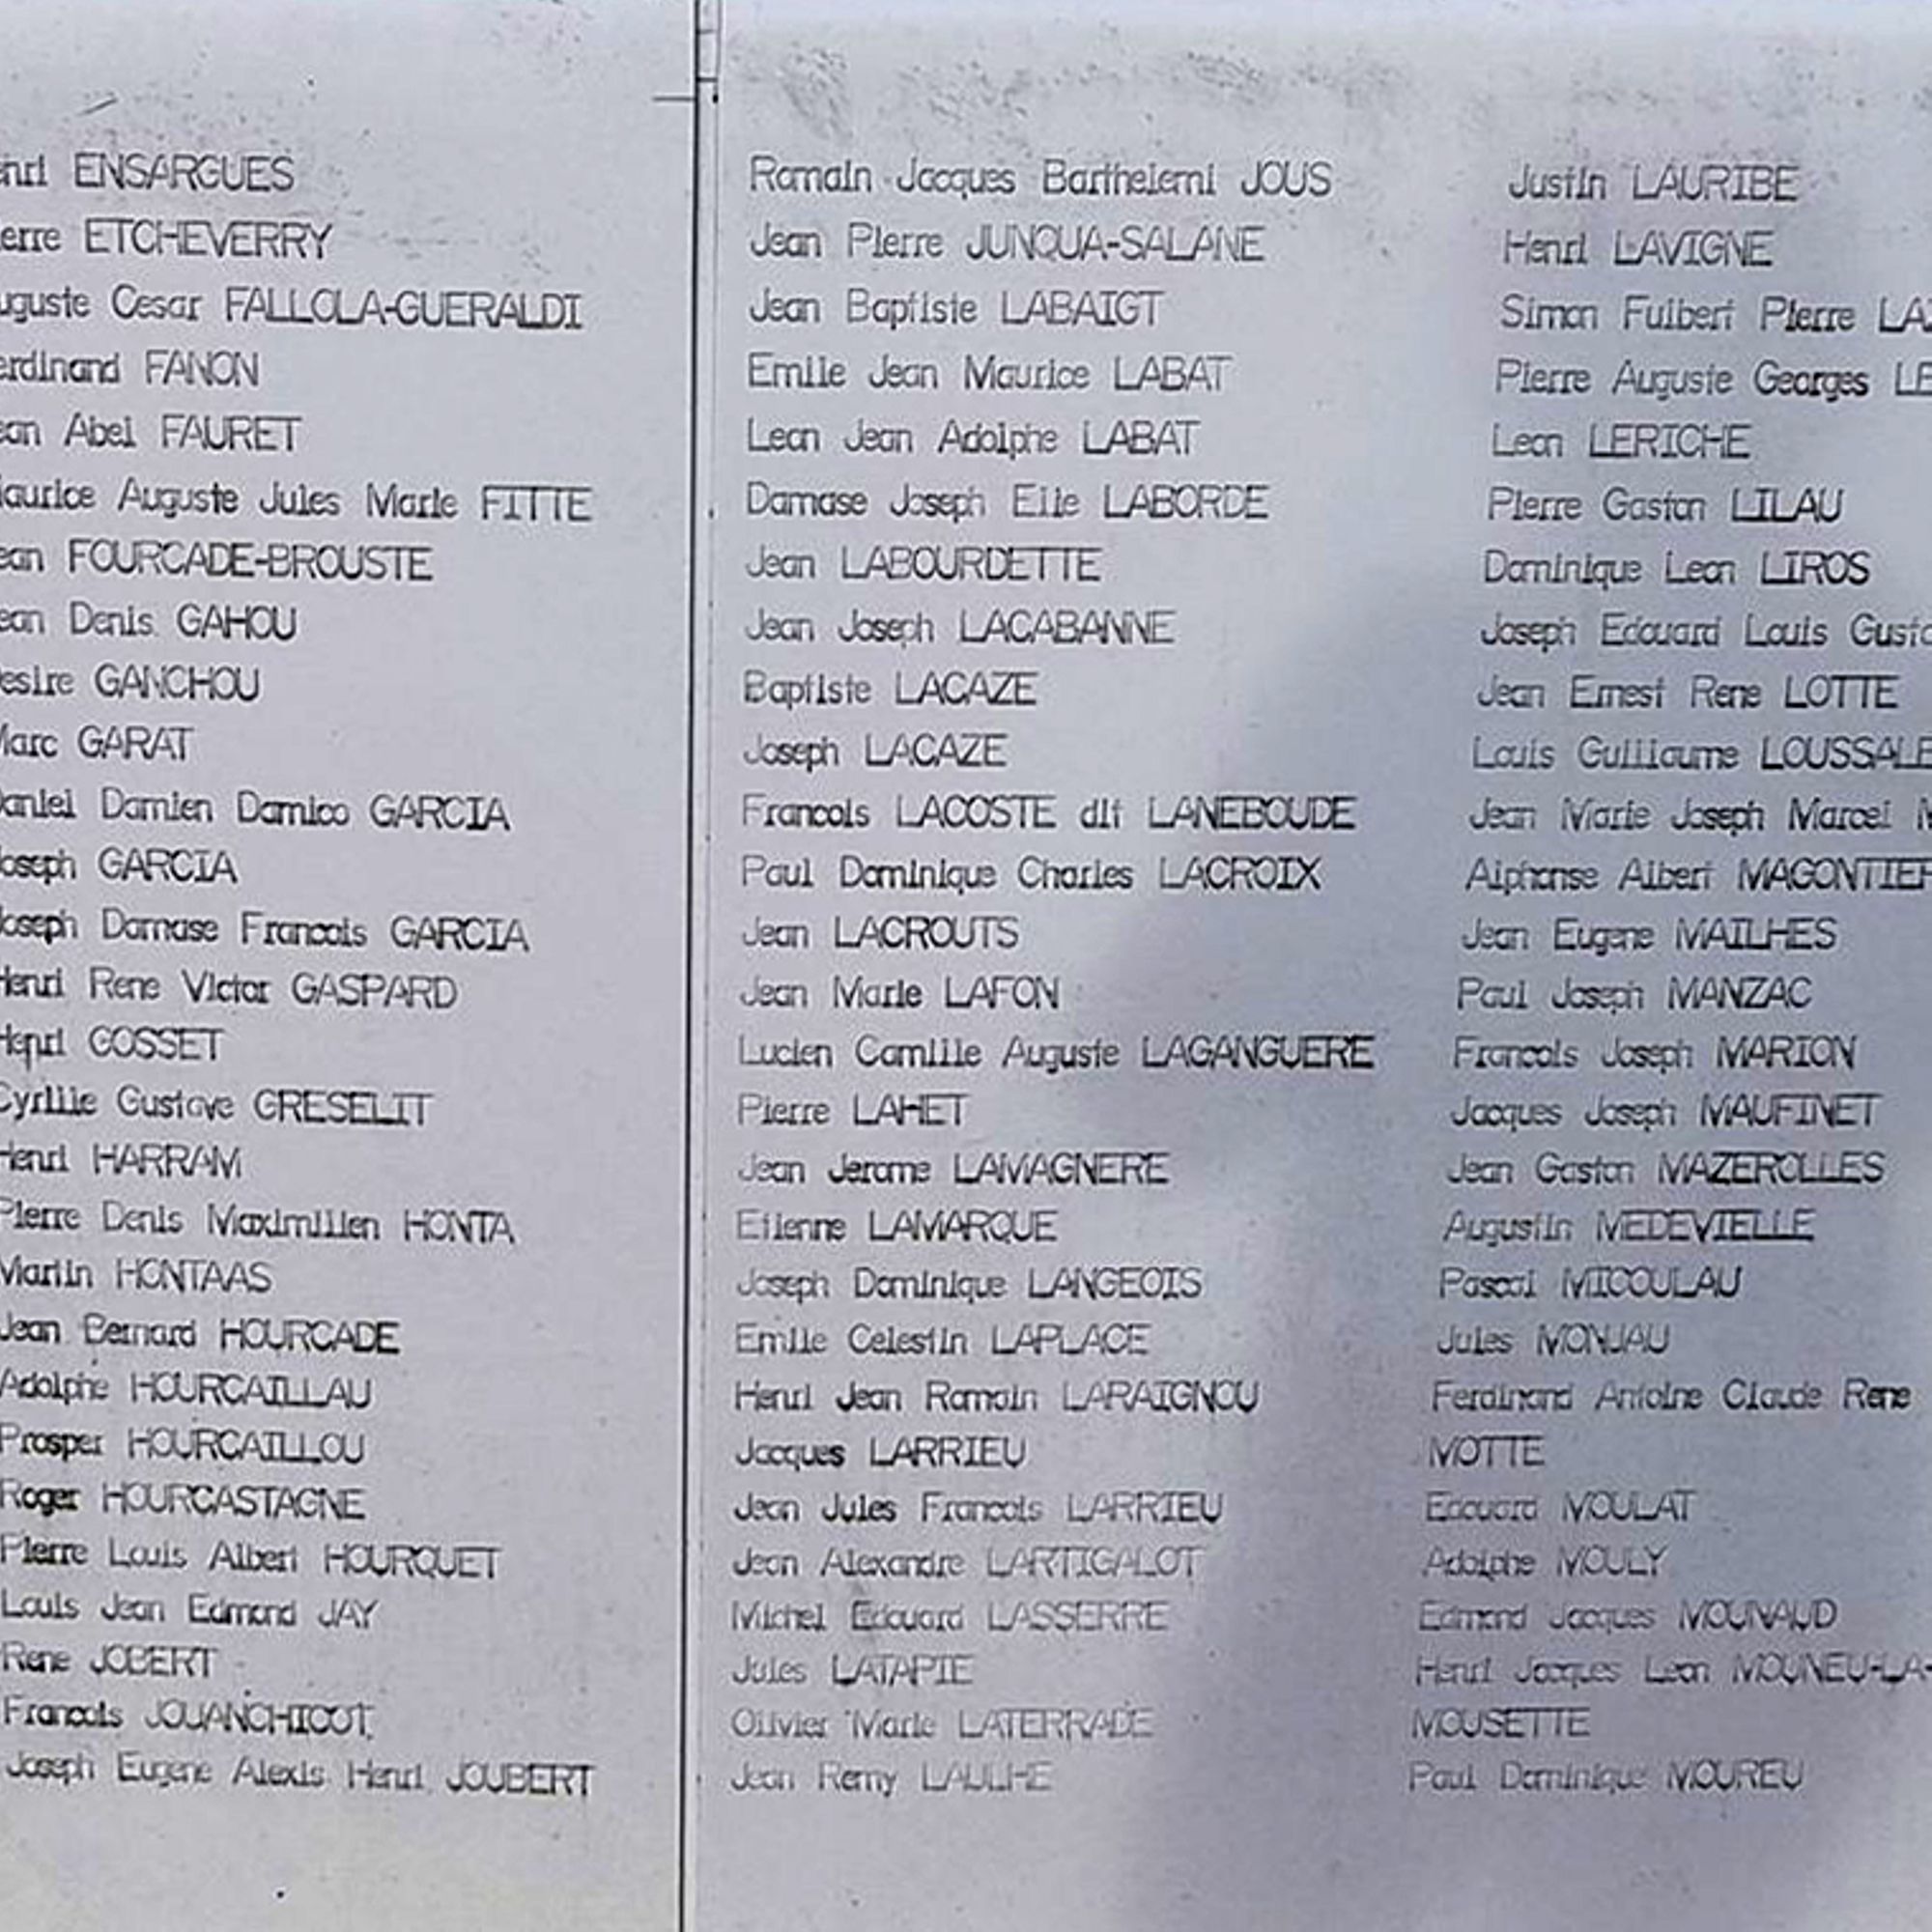 ENSARGUES
ETCHEVERRY
Cesar FALLOLA-GUERALDI
FANON
Abel FAURET
Auguste Jules Marie FITTE
FOURCADE-BROUSTE
Denis GAHOU
GANCHOU
Marc GARAT
Daniel Damien Damico GARCIA
Joseph GARCIA
Joseph Damase Francois GARCIA
Henri Rene Victor GASPARD
Henri GOSSET
Cyrille Gustave GRESELIT
Henri HARRAM
Pierre Denis Maximilien HONTA
Martin HONTAAS
Jean Bernard HOURCADE
Adolphe HOURCAILLAU
Prosper HOURCAILLOU
Roger HOURCASTAGNE
Pierre Louis Albert HOURQUET
Louis Jean Edmond JAY
Rene JOBERT
Francois JOUANCHICOT
Joseph Eugene Alexis Henri JOUBERT
Romain Jacques Barthelemi JOUS
Jean Pierre JUNQUA-SALANE
Jean Baptiste LABAIGT
Emile Jean Maurice LABAT
Leon Jean Adolphe LABAT
Damase Joseph Elie LABORDE
Jean LABOURDETTE
Jean Joseph LACABANNE
Baptiste LACAZE
Joseph LACAZE
Francois LACOSTE dit LANEBOUDE
Paul Dominique Charles LACROIX
Jean LACROUTS
Jean Marie LAFON
Lucien Camille Auguste LAGANGUERE
Pierre LAHET
Jean Jerome LAMAGNERE
Etienne LAMARQUE
Joseph Dominique LANGEOIS
Emile Celestin LAPLACE
Henri Jean Romain LARAIGNOU
Jacques LARRIEU
Jean Jules Francois LARRIEU
Jean Alexandre LARTIGALOT
Michel Edouard LASSERRE
Jules LATAPIE
Olivier Marie LATERRADE
Jean Remy LAULHE
Justin LAURIBE
Henri LAVIGNE
Simon Fulbert Pierre
Pierre Auguste Georges
Leon LERICHE
Pierre Gaston LILAU
Dominique Leon LIROS
Joseph Edouard Louis
Jean Ernest Rene LOTTE
Louis Guillaume
Jean Marie Joseph Marcel
Alphonse Albert
Jean Eugene MAILHES
Paul Joseph MANZAC
Francois Joseph MARION
Jacques Joseph MAUFINET
Jean Gaston MAZEROLLES
Augustin MEDEVIELLE
Pascal MICOULAU
Jules MONJAU
Ferdinand Antoine Claude Rene
MOTTE
Edouard MOULAT
Adolphe MOULY
Edmond Jacques MOUNAUD
Henri Jacques Leon
MOUSETTE
Paul Dominique MOUREU